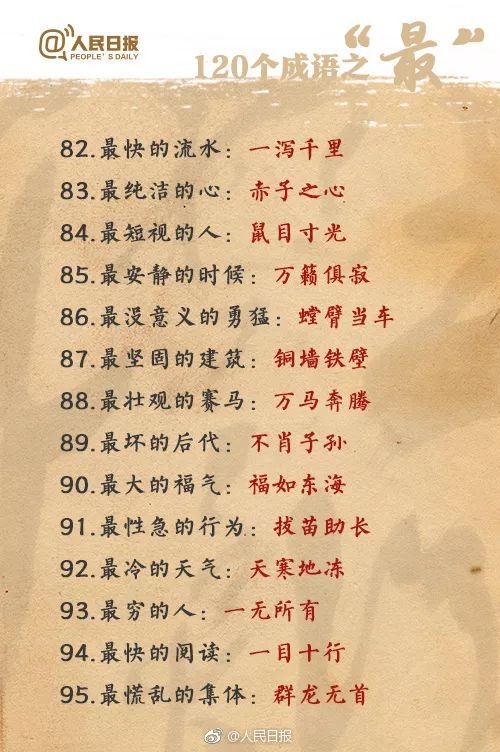 @人民日报
PEOPLE'S DAILY
120个成语之“最”
82.最快的流水：一泻千里
83.最纯洁的心：赤子之心
84.最短视的人：鼠目寸光
85.最安静的时候：万籁俱寂
86.最没意义的勇猛：螳臂当车
87.最坚固的建筑：铜墙铁壁
88.最壮观的赛马：万马奔腾
89.最坏的后代：不肖子孙
90.最大的福气：福如东海
91.最性急的行为：拔苗助长
92.最冷的天气：天寒地冻
93.最穷的人：一无所有
94.最快的阅读：一目十行
95.最慌乱的集体：群龙无首
@人民日报